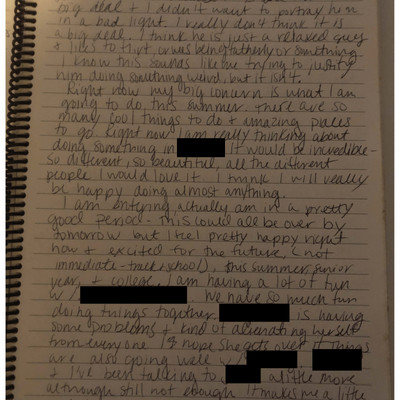 big deal + I didn't want to portray him
in a bad light. I really don't think it is
a big deal. I think he is just a relaxed guy
+ likes to flirt, or was being fatherly or something
I know this sounds like me trying to justify
him doing something weird, but it isn't.
Right now my big concern is what I am
going to do, this summer. There are so
many cool things to do + amazing places
to go. Right now I am really thinking about
doing something in it would be incredible-
so different, so beautiful, all the different
people I would love it I think I will really
be happy doing almost anything.
I am entering actually am in a pretty
good period - this could all be over by
tomorrow but I feel pretty happy right
now + excited for the future, (not
immediate - track + school), this summer, junior
year, + college. I am having a lot of fun
w/ We have so much fun
doing things together. is having
some problems + kind of alienating herself
from everyone I hope she gets over it things
are also going well w/
+ I've been talking to a little more
although still not enough. It makes me a little